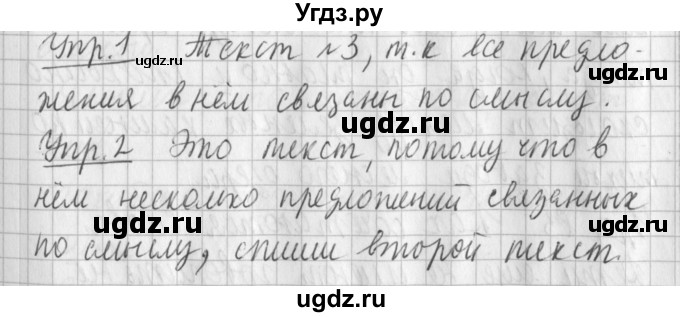 Угдз.ру
Упр.1 Текст №3, т.к все предло-
жения в нём связаны по смыслу.
ugdz.ru ugdz.ru
Упр.2 Это текст, потому что в
нём несколько предложений связанных
ugdz.ru ugdz.ru
по смыслу, спиши второй текст.
ugdz.ru